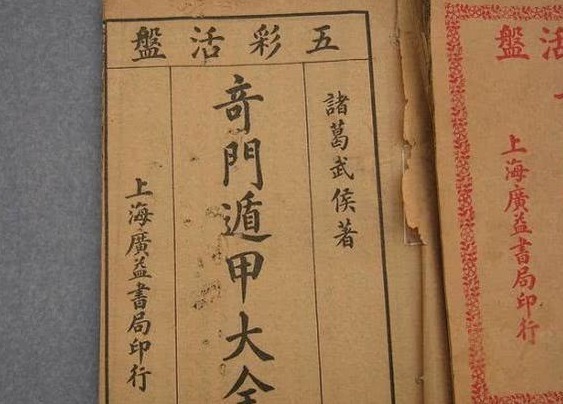 五彩活盤
諸葛武侯著
奇門遁甲大全
上海廣益書局印行
活盤
上海廣益書局印行